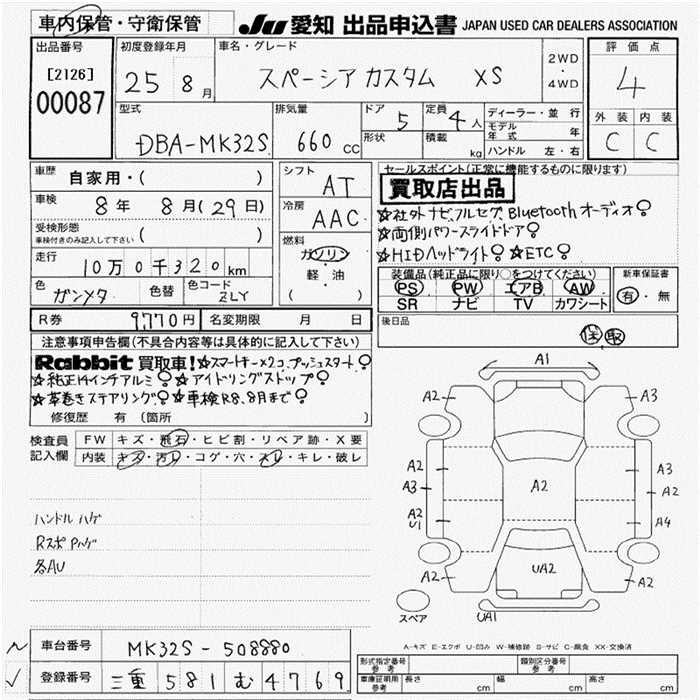 車内保管・守衛保管
JU 愛知 出品申込書 JAPAN USED CAR DEALERS ASSOCIATION
出品番号
[2126]
00087
初度登録年月
25 8月
車名・グレード
スペーシア カスタム XS
2WD
・
4WD
評価点
4
外装 内装
C C
型式
DBA-MK32S
排気量
660 cc
ドア
5
形状
定員
4人
積載
kg
ディーラー・並行
モデル年式 年
ハンドル 左・右
車歴
自家用・( )
車検
8年 8月(29日)
受検形態
車検付きのみ記入して下さい
( )
走行
10万0千320km
色
ガンメタ
色替
色コード
ZLY
シフト
AT
冷房
AAC
燃料
ガソリン
・
軽・油
( )
セールスポイント(正常に機能するものに限ります)
買取店出品
☆社外ナビ、フルセグ、Bluetoothオーディオ
☆両側パワースライドドア
☆HIDヘッドライト ☆ETC
装備品(純正品に限り○をつけてください)
PS PW エアB AW
SR ナビ TV カワシート
新車保証書
有・無
R券 9,770円
名変期限 月 日
後日品
保 取
注意事項申告欄(不具合内容等は具体的に記入して下さい)
Rabbit 買取車!☆スマートキー×2コ、プッシュスタート
☆純正14インチアルミ ☆アイドリングストップ
☆革巻きステアリング ☆車検R8.8月まで
修復歴 有 (箇所
検査員記入欄
FW キズ・飛石・ヒビ割・リペア跡・X要
内装 キズ・汚レ・コゲ・穴・スレ・キレ・破レ
ハンドル ハゲ
各AU
A1
A2 A3
A2 A3
A3 A2 A2
A2 A4
U1
A2 UA2 A2
スペア UA1
A-キズ E-エクボ U-凹み W-補修跡 S-サビ C-腐食 XX-交換済
車台番号 MK32S-508880
登録番号 三重 581 む 4769
形式指定番号
参考
類別区分番号
参考
車庫証明用
参考
長さ cm 幅 cm 高さ cm